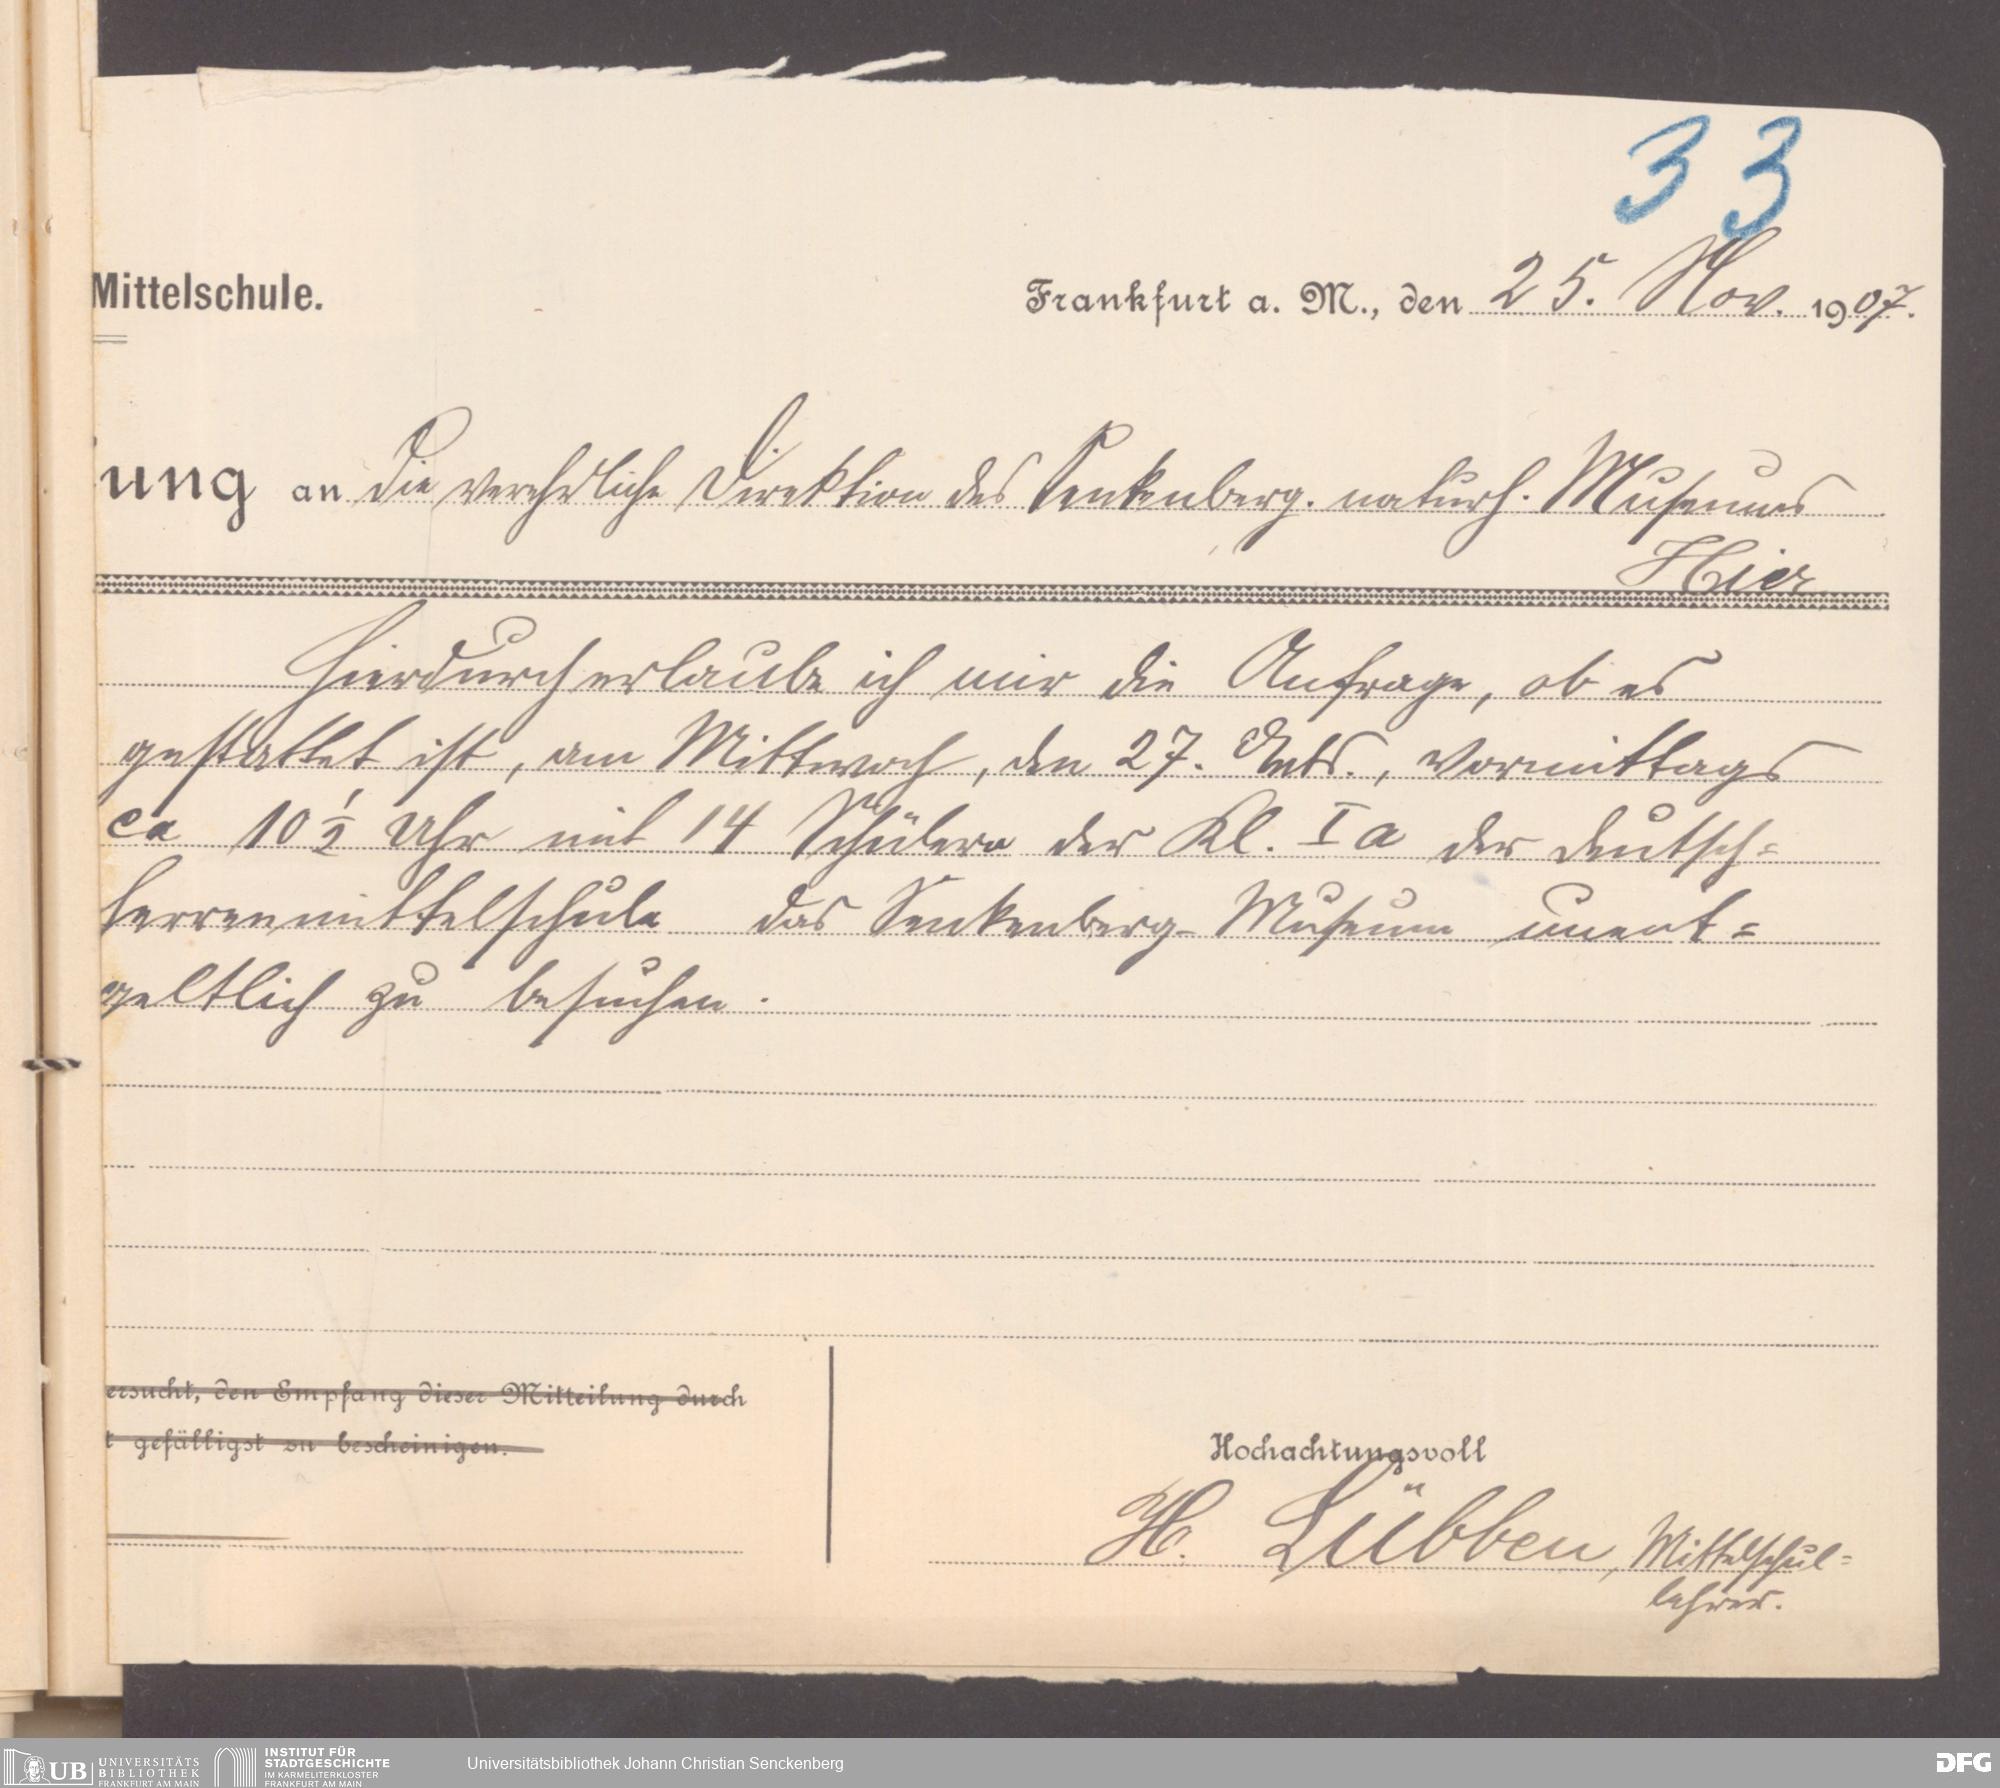 33
Mittelschule.
Frankfurt a. M., den 25. Nov. 1907.
ung an die verehrliche Direktion des Senkenberg. naturh. Museums
Hier
Hierdurch erlaube ich mir die Anfrage, ob es
gestattet ist, am Mittwoch, den 27. Mts., vormittags
ca 10 1/2 Uhr mit 14 Schülern der Kl. I a der Deutsch=
herrenmittelschule das Senkenberg-Museum unent=
geltlich zu besuchen.
ersucht, den Empfang dieser Mitteilung durch
t gefälligst zu bescheinigen.
Hochachtungsvoll
H. Lübben, Mittelschul=
lehrer.
UB UNIVERSITÄTS
BIBLIOTHEK
FRANKFURT AM MAIN
INSTITUT FÜR
STADTGESCHICHTE
IM KARMELITERKLOSTER
FRANKFURT AM MAIN
Universitätsbibliothek Johann Christian Senckenberg
DFG